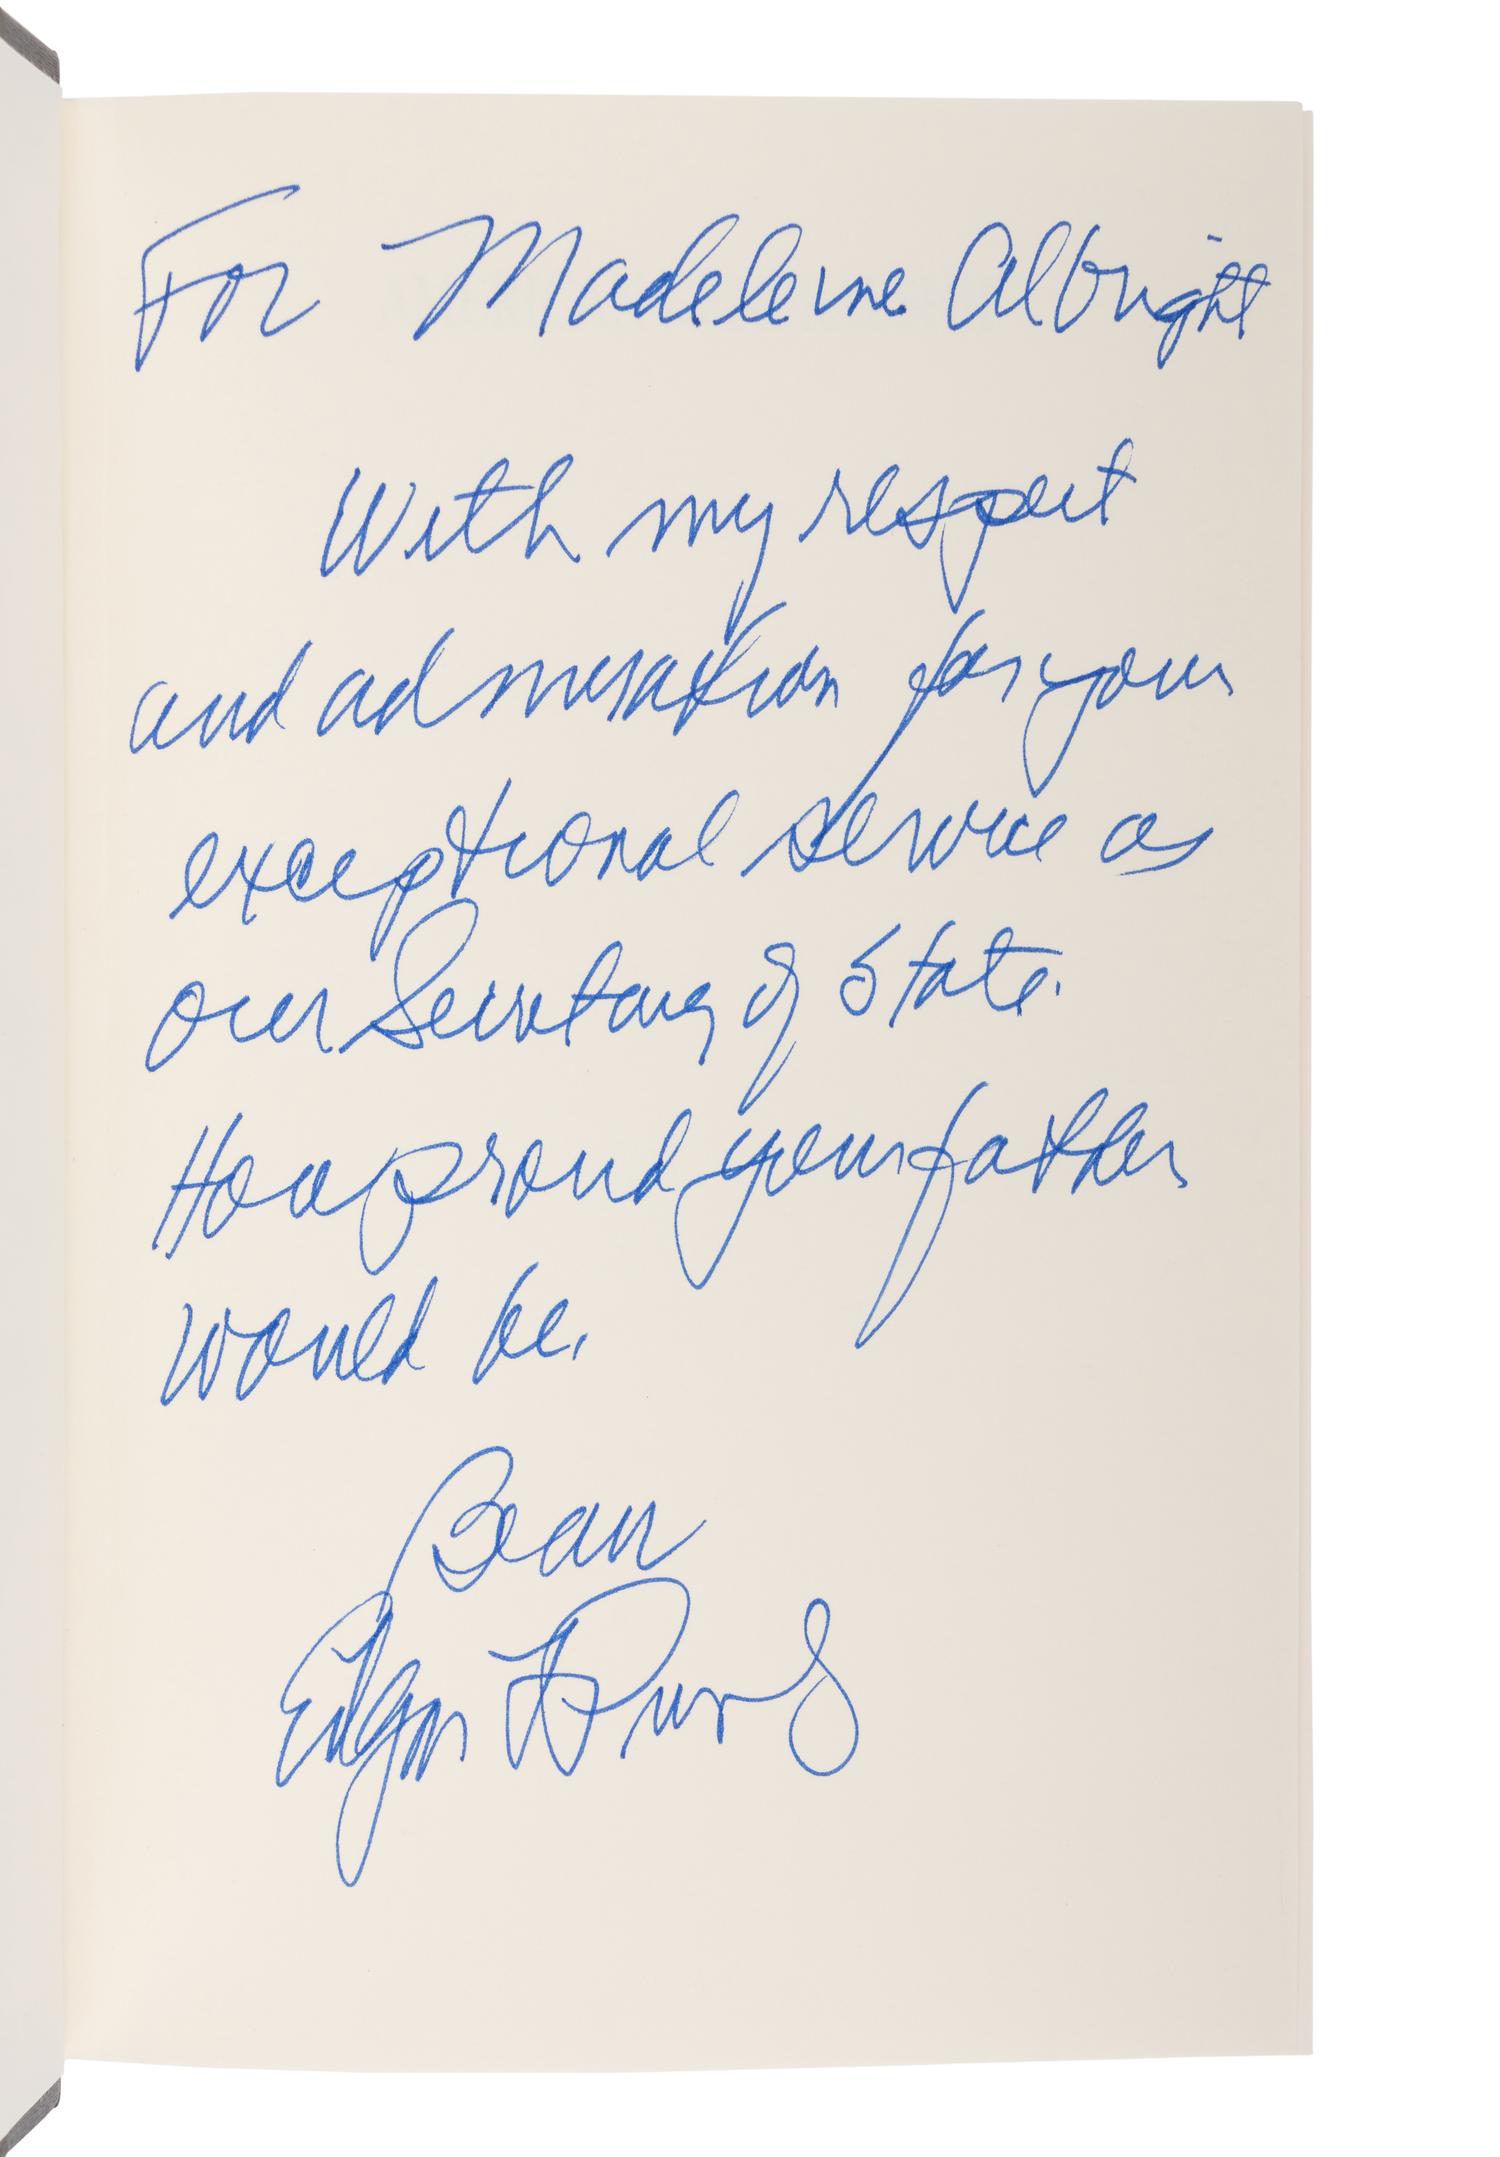 For Madeleine Albright
With my respect
and admiration for your
exceptional service as
our Secretary of State.
How proud your father
would be.
Edgar